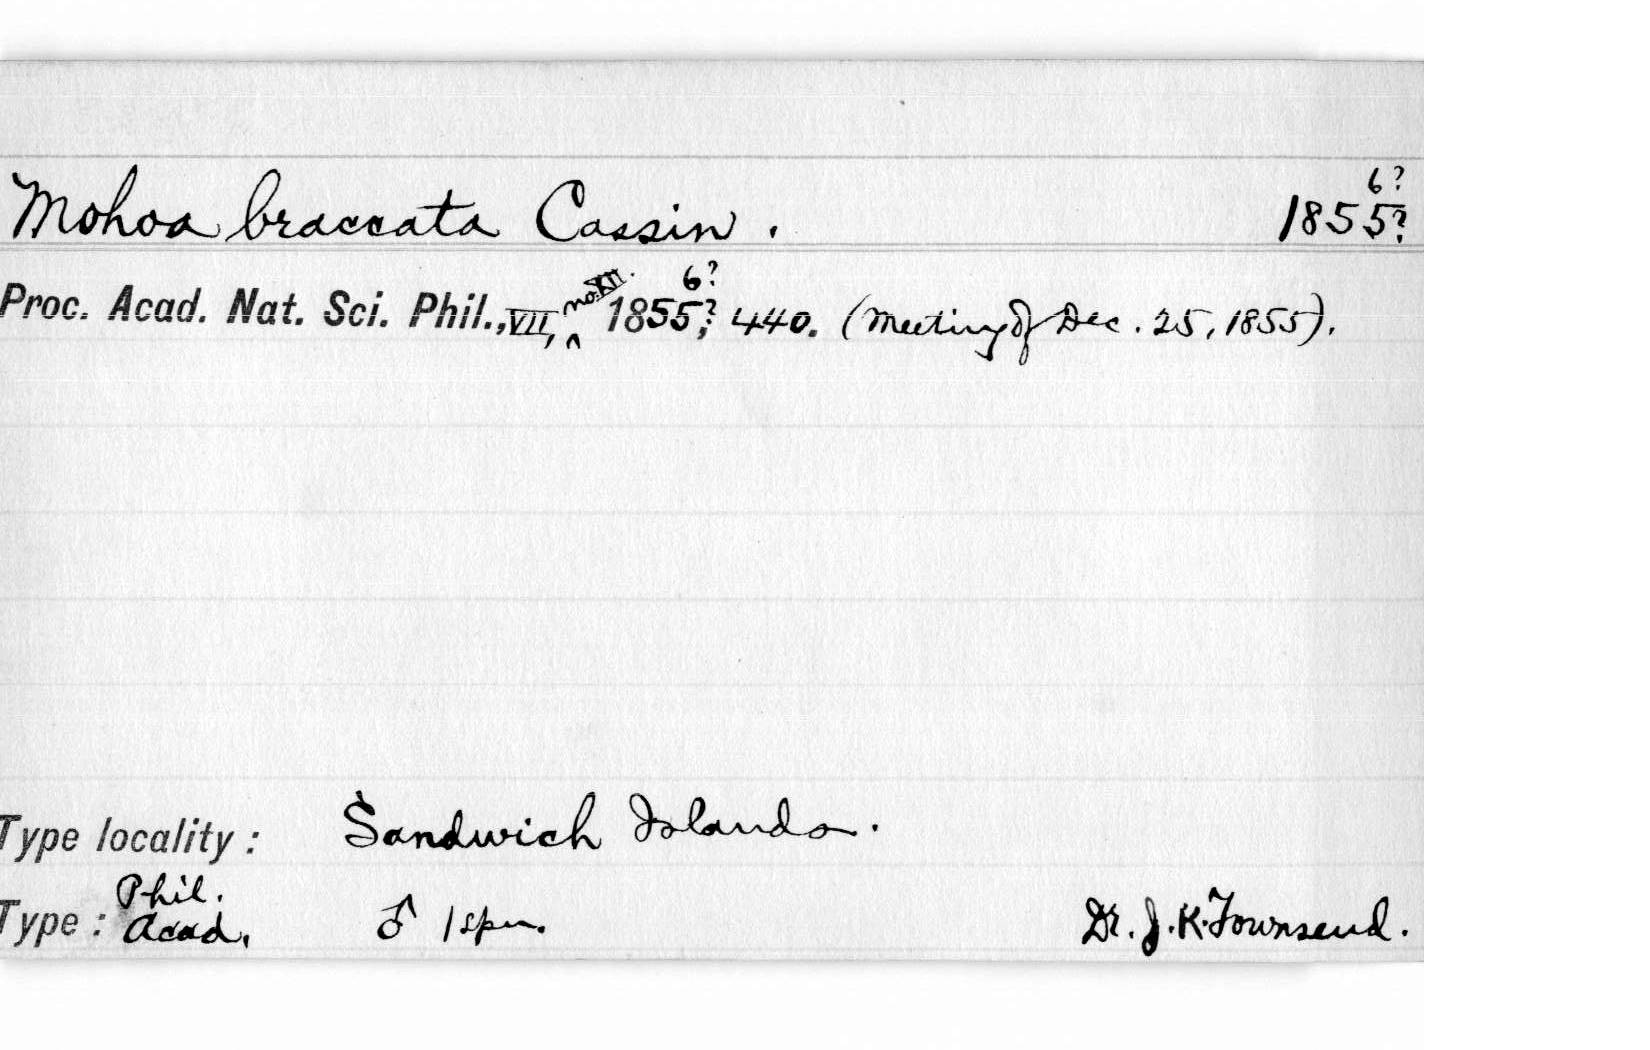 Mohoa braccata Cassin. 1855? 6?
Proc. Acad. Nat. Sci. Phil., VII, no. XII. 1855?; 6? 440. (Meeting of Dec. 25, 1855).
Type locality: Sandwich Islands.
Type: Phil. Acad. ♂ 1 spm. Dr. J. K. Townsend.